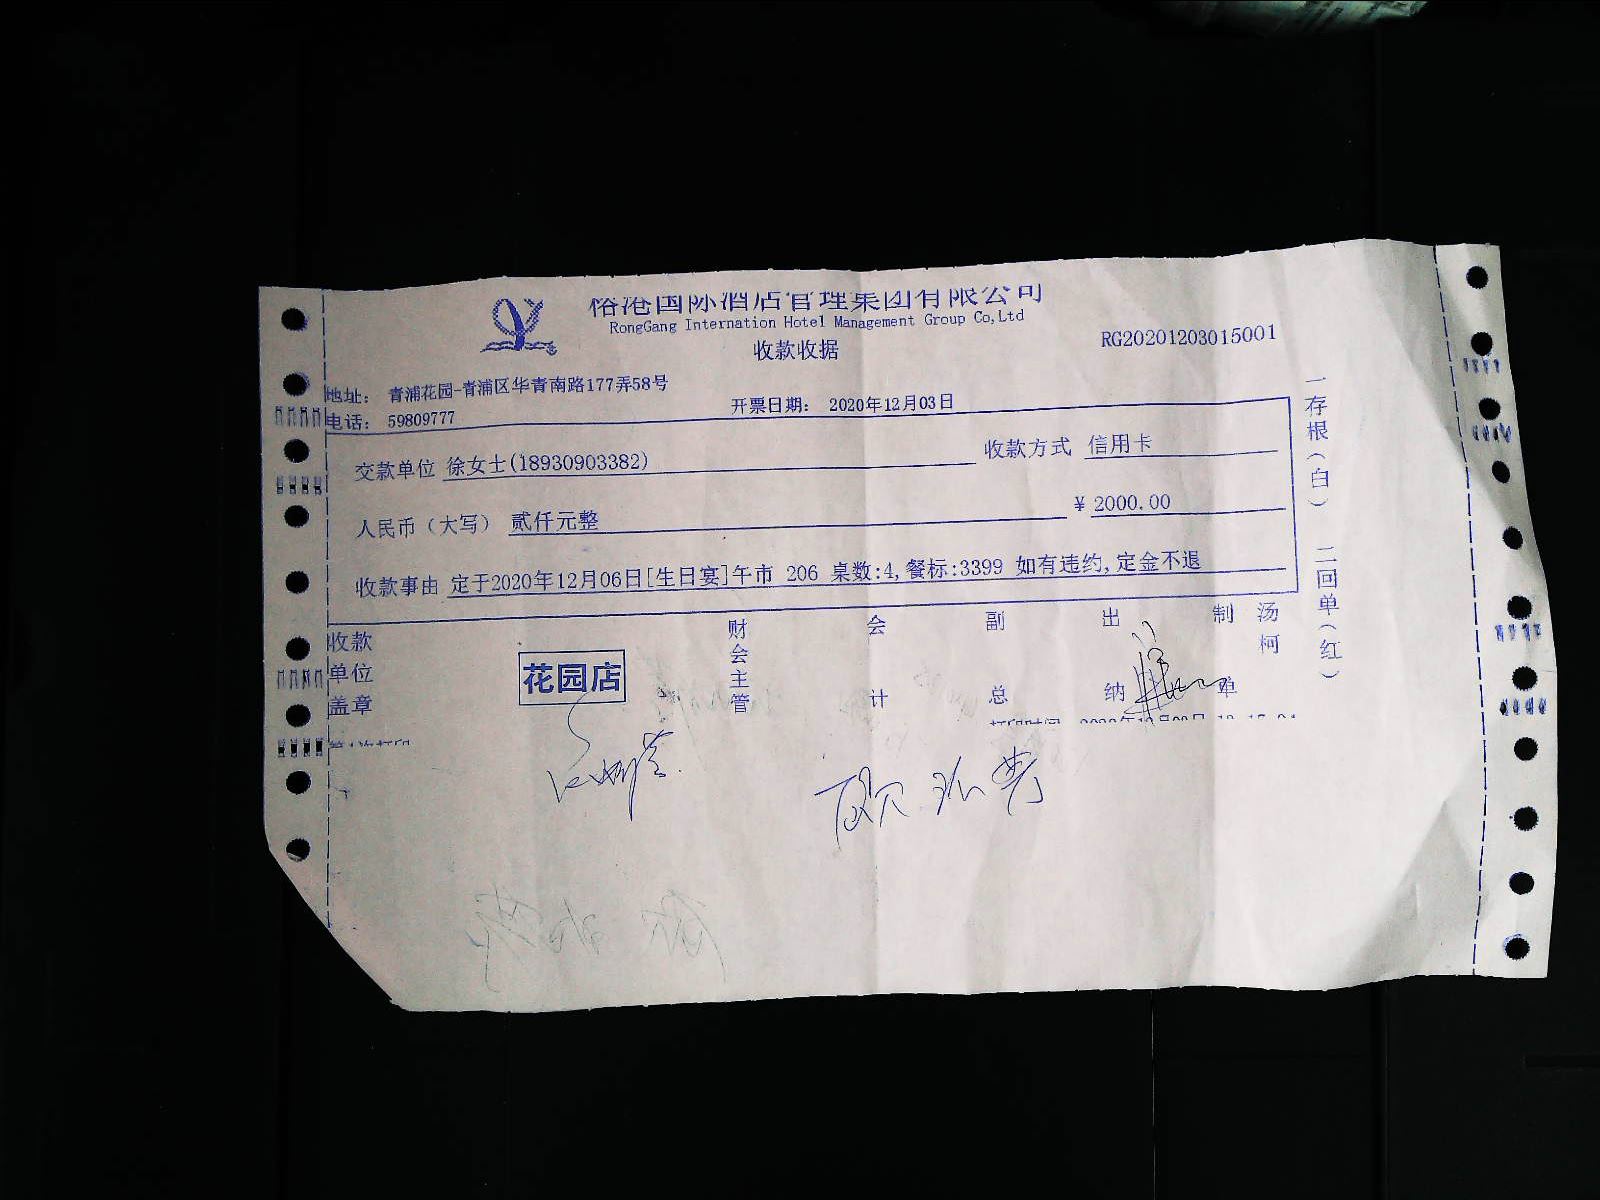 裕港国际酒店管理集团有限公司
RongGang Internation Hotel Management Group Co,Ltd
收款收据
RG20201203015001
地址： 青浦花园-青浦区华青南路177弄58号
电话： 59809777
开票日期： 2020年12月03日
交款单位 徐女士(18930903382)
收款方式 信用卡
人民币（大写） 贰仟元整
¥ 2000.00
收款事由 定于2020年12月06日[生日宴]午市 206 桌数:4,餐标:3399 如有违约,定金不退
一存根（白） 二回单（红）
收款单位盖章
花园店
财会主管
会计
副总
出纳
制单
汤柯